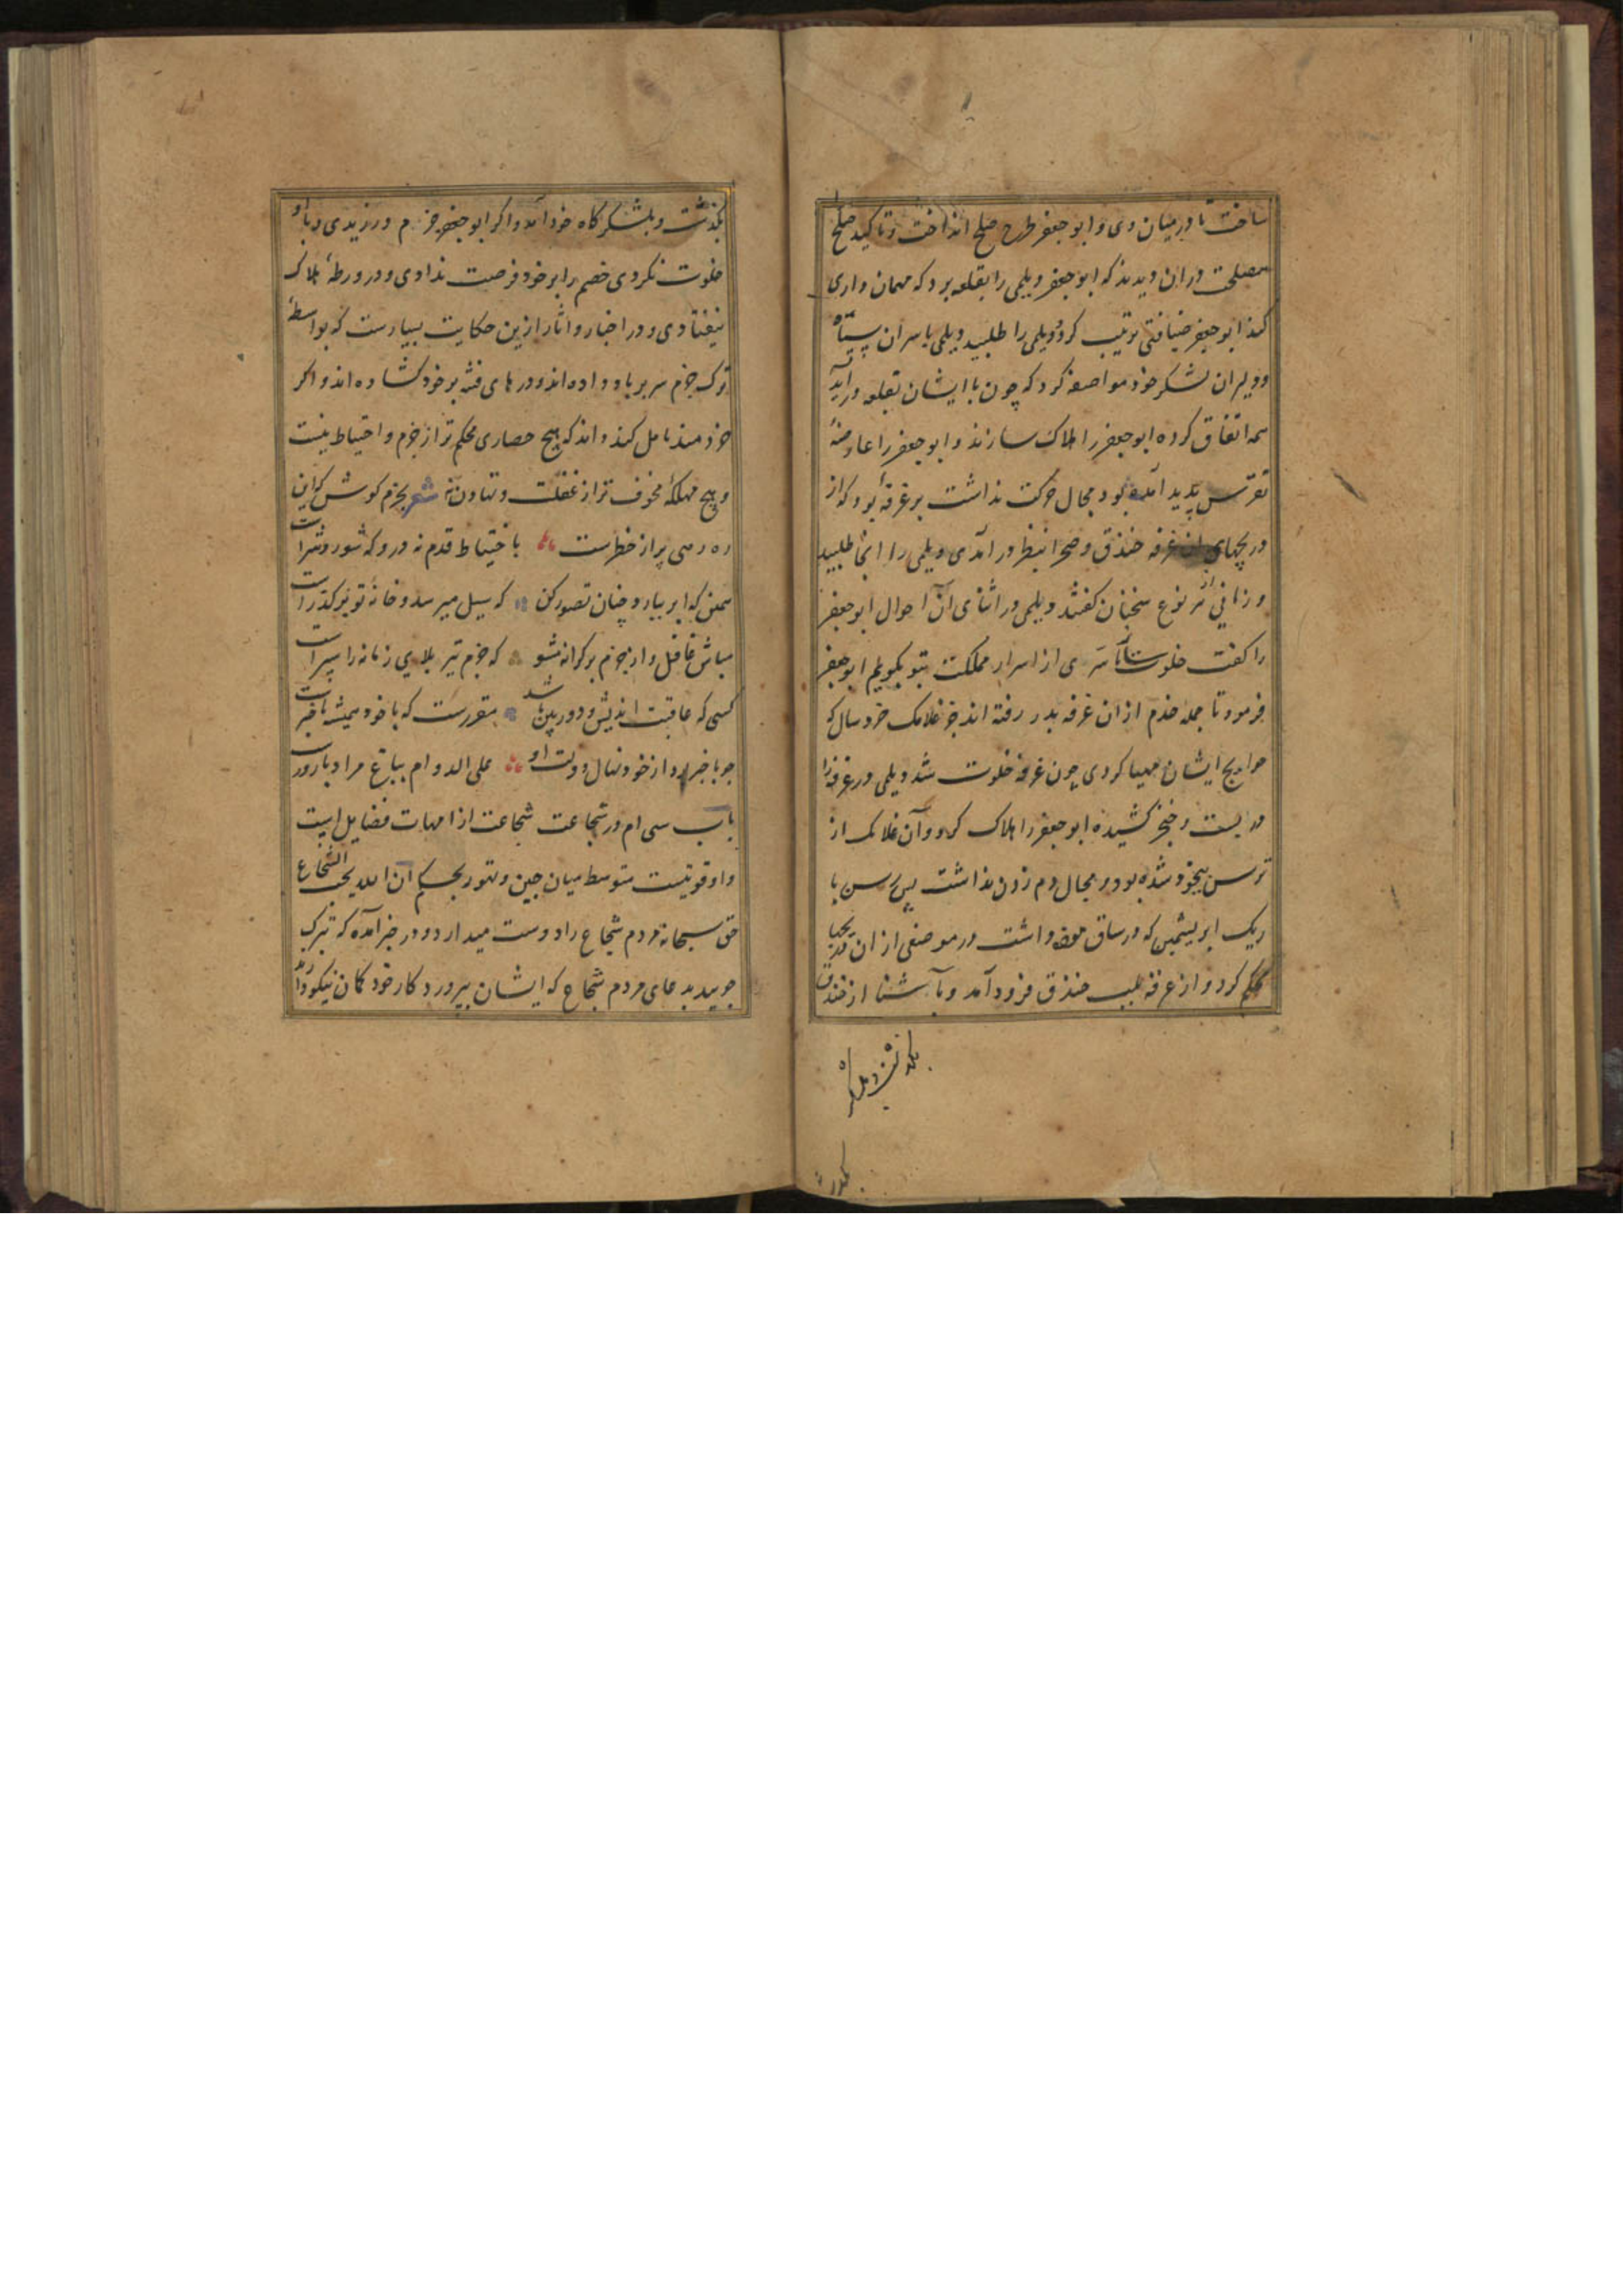 ساخت تا در میان وی و ابو جعفر طرح صلح انداخت و تاکید صلح
مصلحت در ان دیدند که ابو جعفر دیلمی را بقلعه برد که مهمان داری
کند ابو جعفر ضیافتی ترتیب کرد و دیلمی را طلبید دیلمی با سران سپاه
و دلیران لشکر خود مواضعه کرد که چون با ایشان بقلعه در آید
همه اتفاق کرده ابو جعفر را هلاک سازند و ابو جعفر را عارضهٔ
نقرس پدید آمده بود و مجال حرکت نداشت بر غرفهٔ بود که از
دریچهای ان غرفه خندق و صحرا بنظر در آمدی دیلمی را انجا طلبید
و زمانی از هر نوع سخنان گفتند دیلمی در اثنای آن احوال ابو جعفر
را گفت خلوت تا سری از اسرار مملکت بتو بگویم ابو جعفر
فرمود تا جمله خدم از ان غرفه بدر رفته اند جز غلامک خرد سال که
حوایج ایشان مهیا کردی چون غرفه خلوت شد دیلمی در غرفه را
در بست و خنجر کشیده ابو جعفر را هلاک کرد و آن غلامک از
ترس بیخود شده بود و مجال دم زدن نداشت پس رسن با
ریک ابریشمین که در ساق موزه داشت در موضعی از ان دریچها
محکم کرد و از غرفه بلب خندق فرود آمد و بآشنا از خندق
بگذشت و بلشکرگاه
بگذشت و بلشکرگاه خود آمد و اگر ابو جعفر حزم ورزیدی و با او
خلوت نکردی خصم را بر خود فرصت ندادی و در ورطهٔ هلاک
نیفتادی و در اخبار و اثار ازین حکایت بسیارست که بواسطهٔ
ترک حزم سر بر باد داده اند و درهای فتنه بر خود گشاده اند و اگر
خردمند تامل کند داند که هیچ حصاری محکم تر از حزم و احتیاط نیست
و هیچ مهلکهٔ مخوف تر از غفلت و تهاون نه شعر بحزم کوش که این
ره رهی پر از خطرست با حتیاط قدم نه درو که شور و شرست
همین که ابر بیارد چنان تصور کن که سیل میرسد و خانهٔ تو بر گذرست
مباش غافل و از حزم بر کرانه مشو که حزم تیر بلای زمانه را سپرست
کسی که عاقبت اندیش و دور بین باشد مقررست که با خود همیشه باخبرست
چو باخبر بود از خود نهال دولت او علی الدوام بباغ مراد بارورست
باب سی ام در شجاعت شجاعت از امهات فضایل است
و او قوتیست متوسط میان جبن و تهور بحکم ان الله یحب الشجاع
حق سبحانه مردم شجاع را دوست میدارد و در خبر آمده که تبرک
جویید بدعای مردم شجاع که ایشان بپروردکار خود گمان نیکو دارند